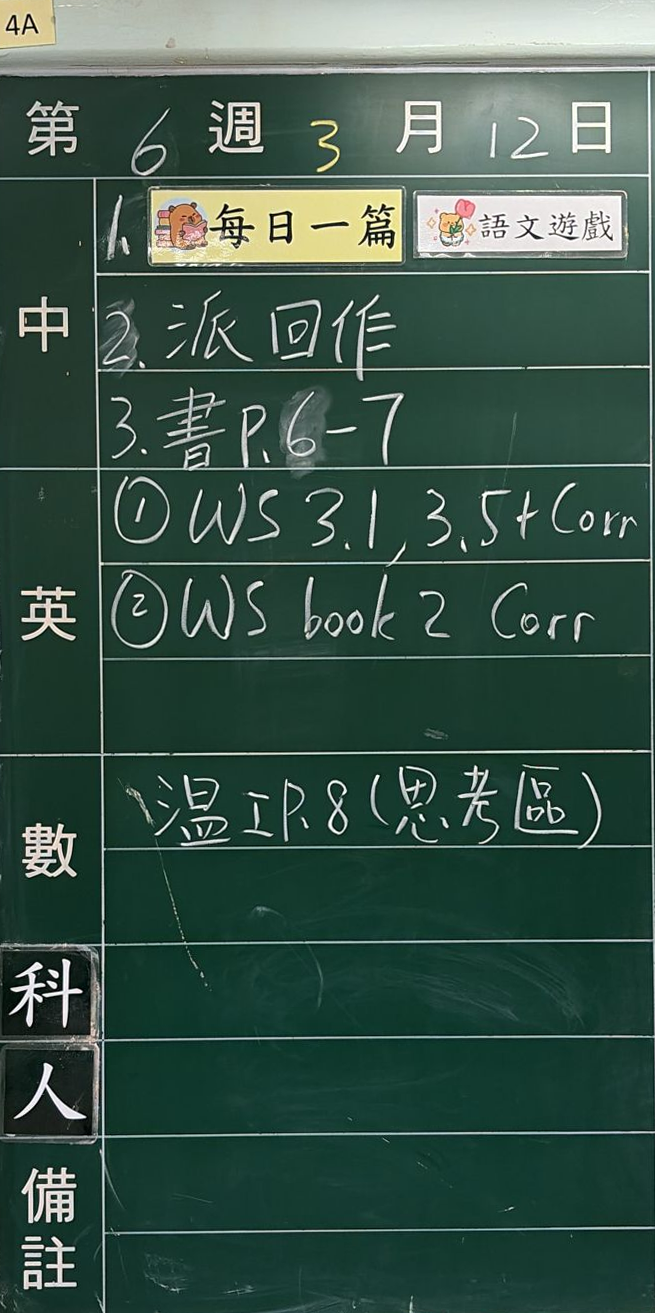 4A
第 6 週 3 月 12 日
中
1. 每日一篇 語文遊戲
2. 派回作
3. 書P.6-7
英
① WS 3.1, 3.5 + Corr
② WS book 2 Corr
數
温工P.8 (思考區)
科
人
備註